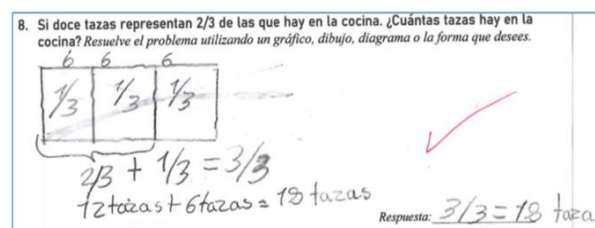 8. Si doce tazas representan 2/3 de las que hay en la cocina. ¿Cuántas tazas hay en la
cocina? Resuelve el problema utilizando un gráfico, dibujo, diagrama o la forma que desees.
6 6 6
1/3 1/3 1/3
2/3 + 1/3 = 3/3
12 tazas + 6 tazas = 18 tazas
Respuesta: 3/3 = 18 taza